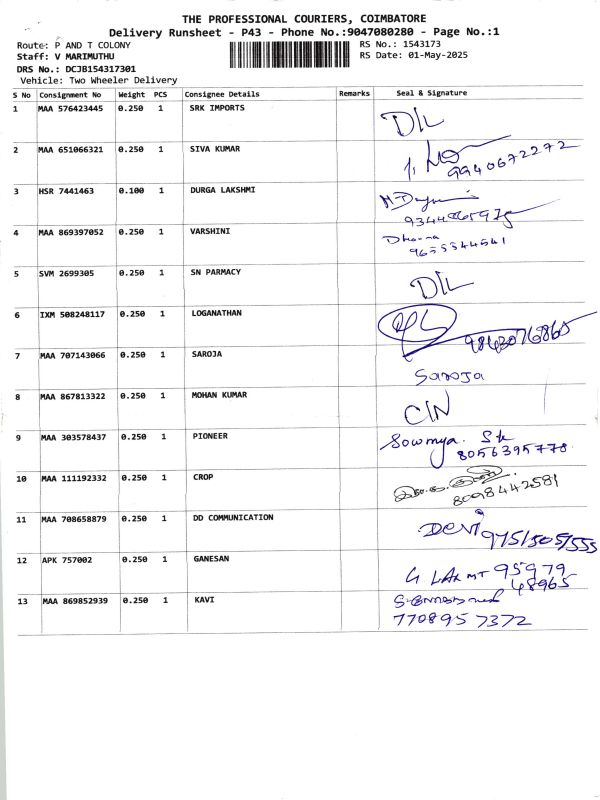 THE PROFESSIONAL COURIERS, COIMBATORE
Delivery Runsheet - P43 - Phone No.:9047080280 - Page No.:1
Route: P AND T COLONY
RS No.: 1543173
Staff: V MARIMUTHU
RS Date: 01-May-2025
DRS No.: DCJB154317301
Vehicle: Two Wheeler Delivery
S No Consignment No Weight PCS Consignee Details Remarks Seal & Signature
1 MAA 576423445 0.250 1 SRK IMPORTS D/L
2 MAA 651066321 0.250 1 SIVA KUMAR
9940672272
3 HSR 7441463 0.100 1 DURGA LAKSHMI
4 MAA 869397052 0.250 1 VARSHINI
9655344541
5 SVM 2699305 0.250 1 SN PARMACY D/L
6 IXM 508248117 0.250 1 LOGANATHAN
7 MAA 707143066 0.250 1 SAROJA Saroja
8 MAA 867813322 0.250 1 MOHAN KUMAR C/N
9 MAA 303578437 0.250 1 PIONEER Sowmya. Sk
8056395778.
10 MAA 111192332 0.250 1 CROP
8098442581
11 MAA 708658879 0.250 1 DD COMMUNICATION
12 APK 757002 0.250 1 GANESAN 95979
48965
13 MAA 869852939 0.250 1 KAVI
7708957372